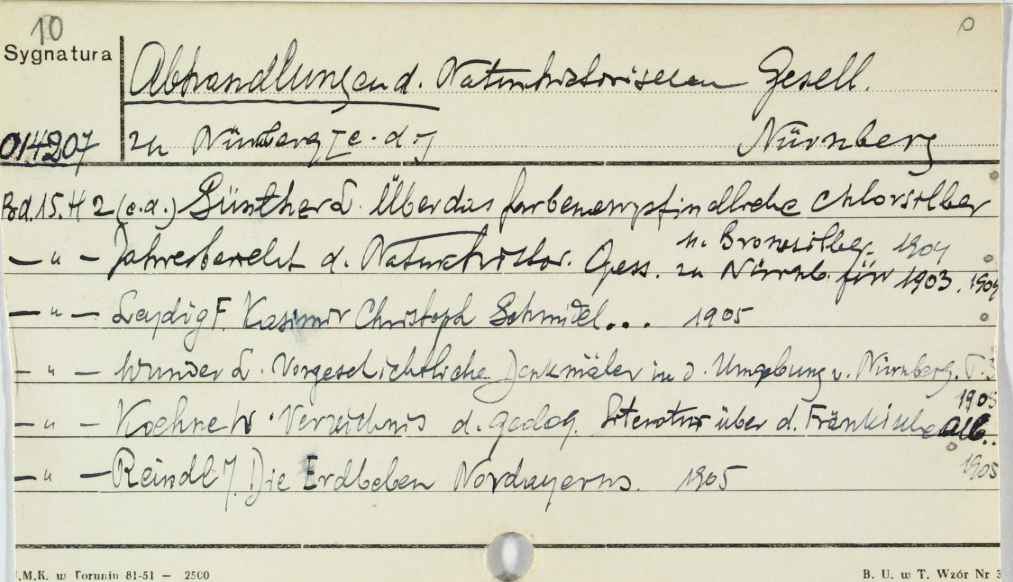 10
Sygnatura
Abhandlungen d. Naturhistorischen Gesell.
014207 zu Nürnberg [e. d.] Nürnberg
Bd. 15. H 2 (e.d.) Günther L. Über das farbenempfindliche Chlorsilber
u. Bromsilber. 1904
— " — Jahresbericht d. Naturhistor. Gess. zu Nürnb. für 1903. 1904
— " — Leydig F. Kasimir Christoph Schmidel... 1905
— " — Wunder L. Vorgeschichtliche Denkmäler in d. Umgebung v. Nürnberg. T. 3
1905
— " — Koehne W. Verzeichnis d. geolog. Literatur über d. Fränkische Alb..
1905
— " — Reindl J. Die Erdbeben Nordbayerns. 1905
U.M.K. w Toruniu 81-51 — 2500
B. U. w T. Wzór Nr 3